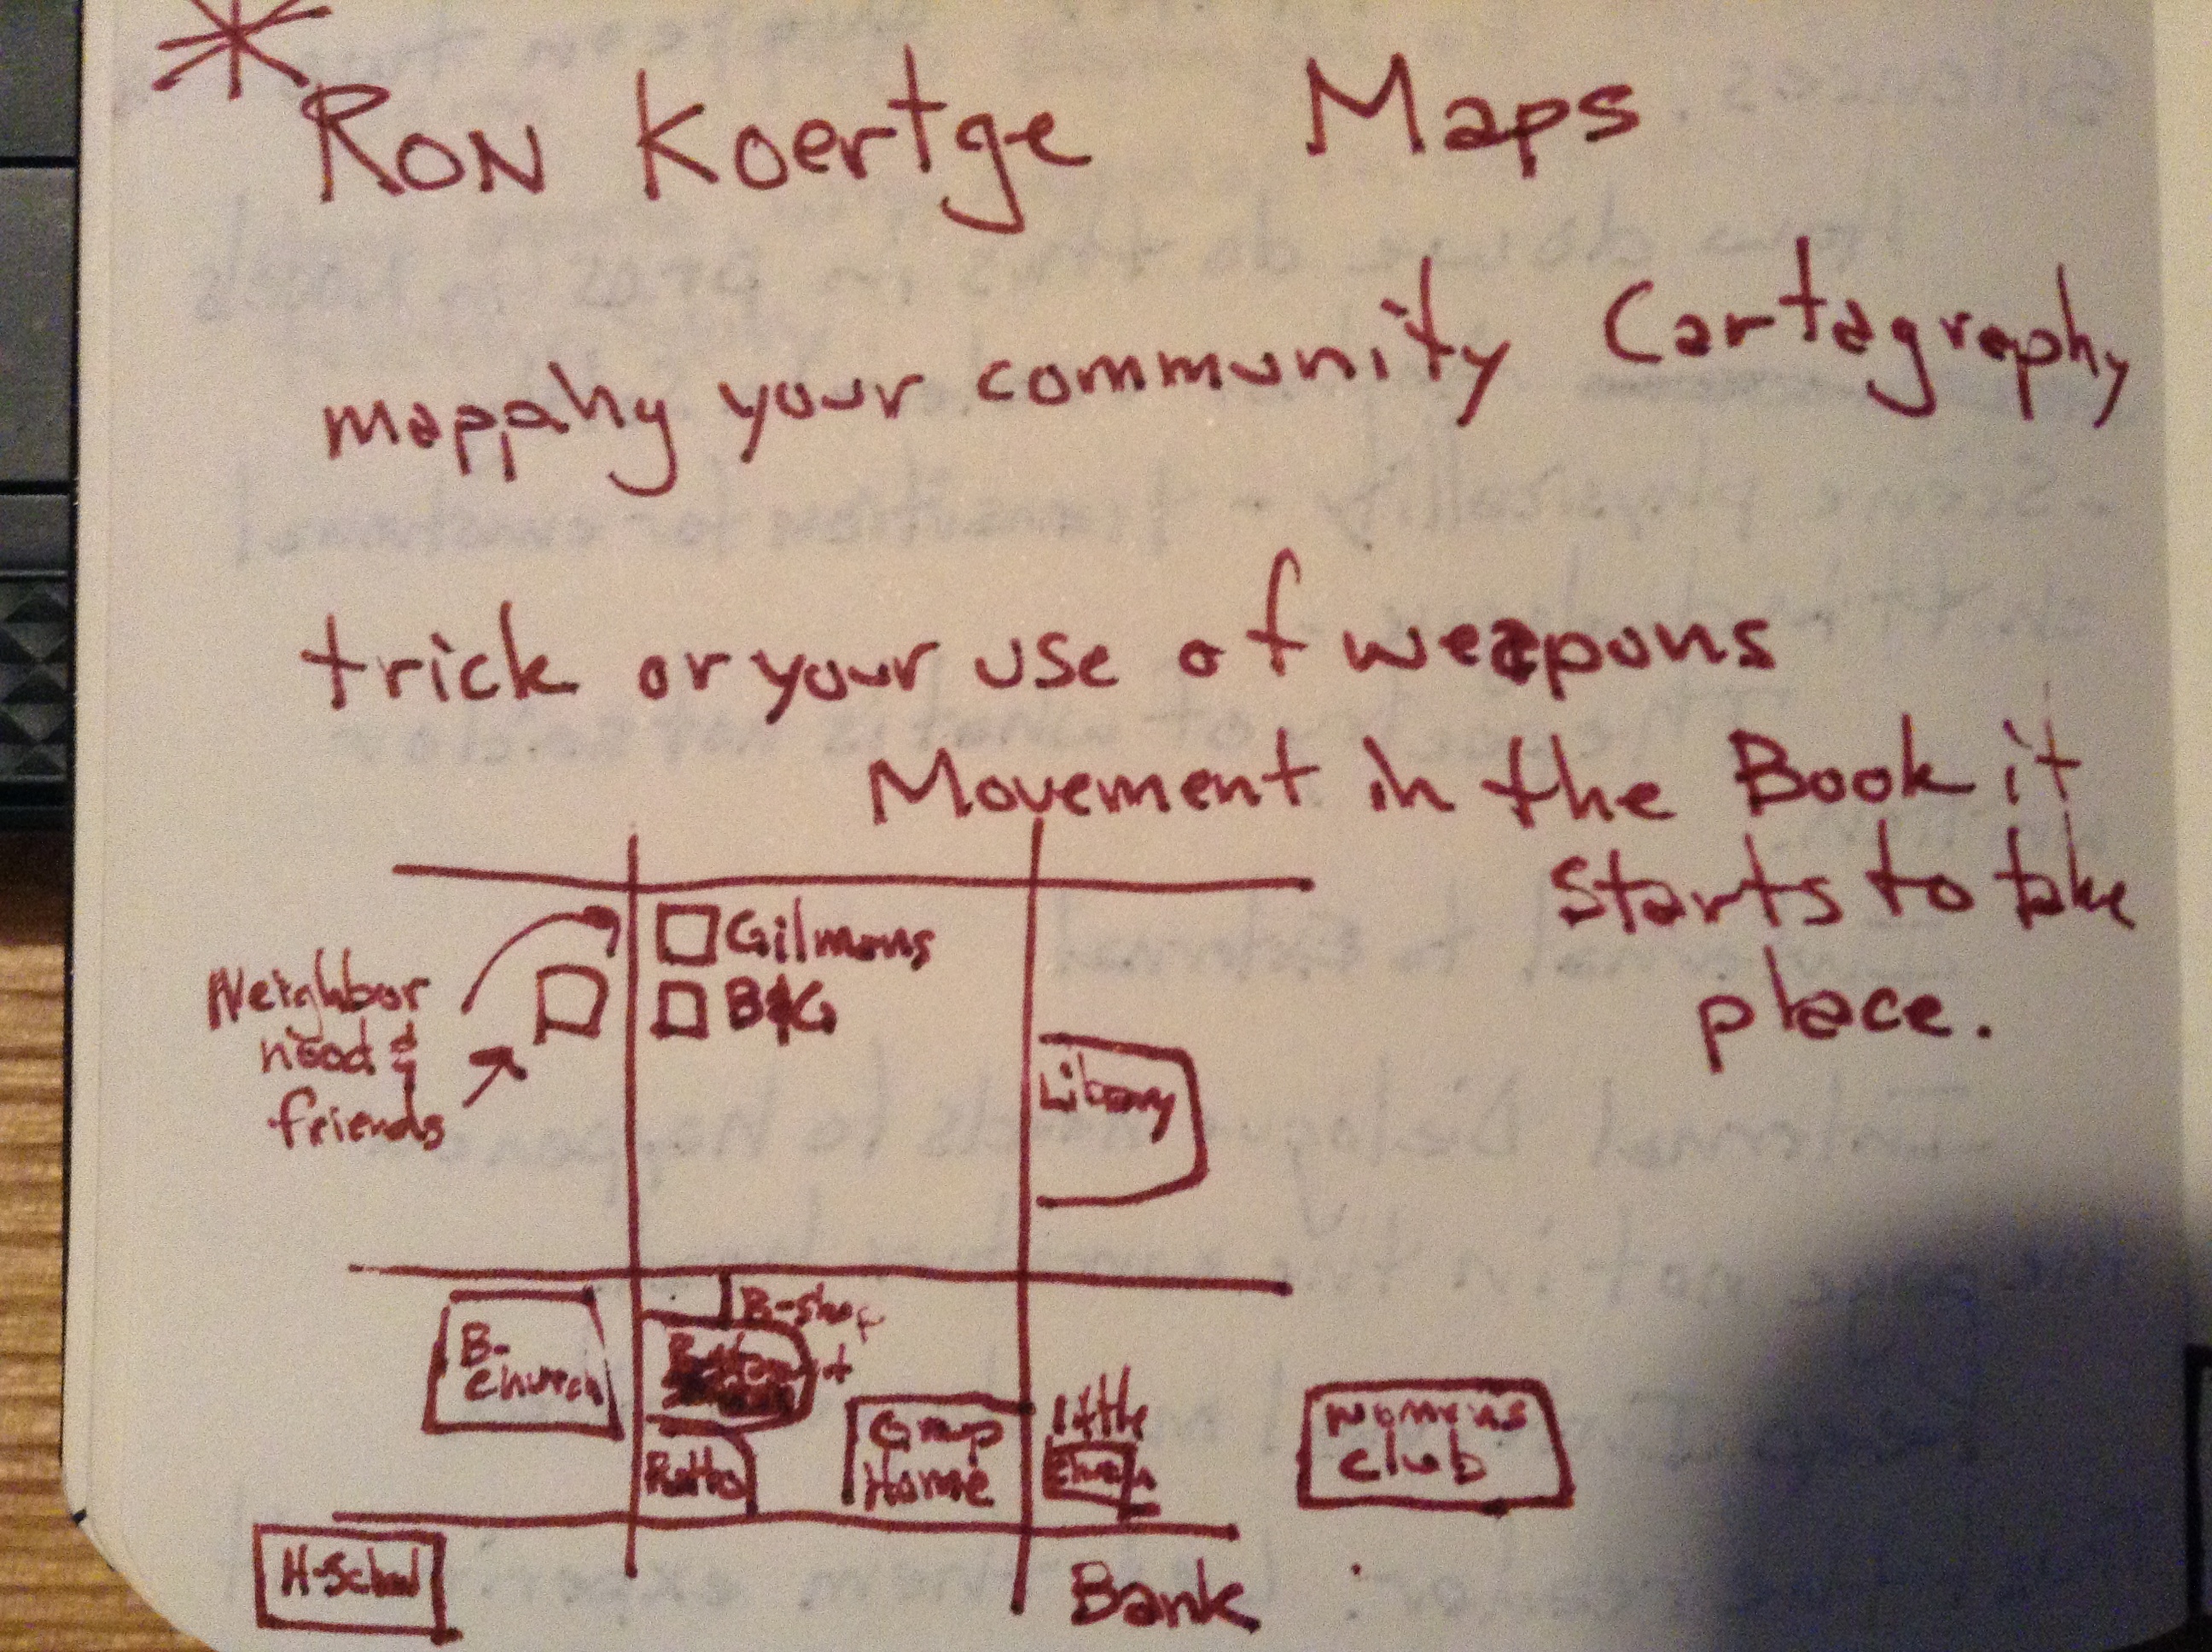 RON Koertge Maps
mapping your community Cartagraphy
trick or your use of weapons
Movement in the Book it
Starts to take
place.
Gilmans
B&G
Neighbor
hood &
friends
Library
B-shop
B-
church
Group
Home
little
church
womens
club
H-School
Bank